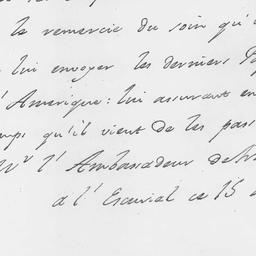 le remercie du soin qu'
lui envoyer les derniers
l'Amerique: lui assurant en
qu'il vient de les pas
l'Ambassadeur de
a l'Escurial ce 15